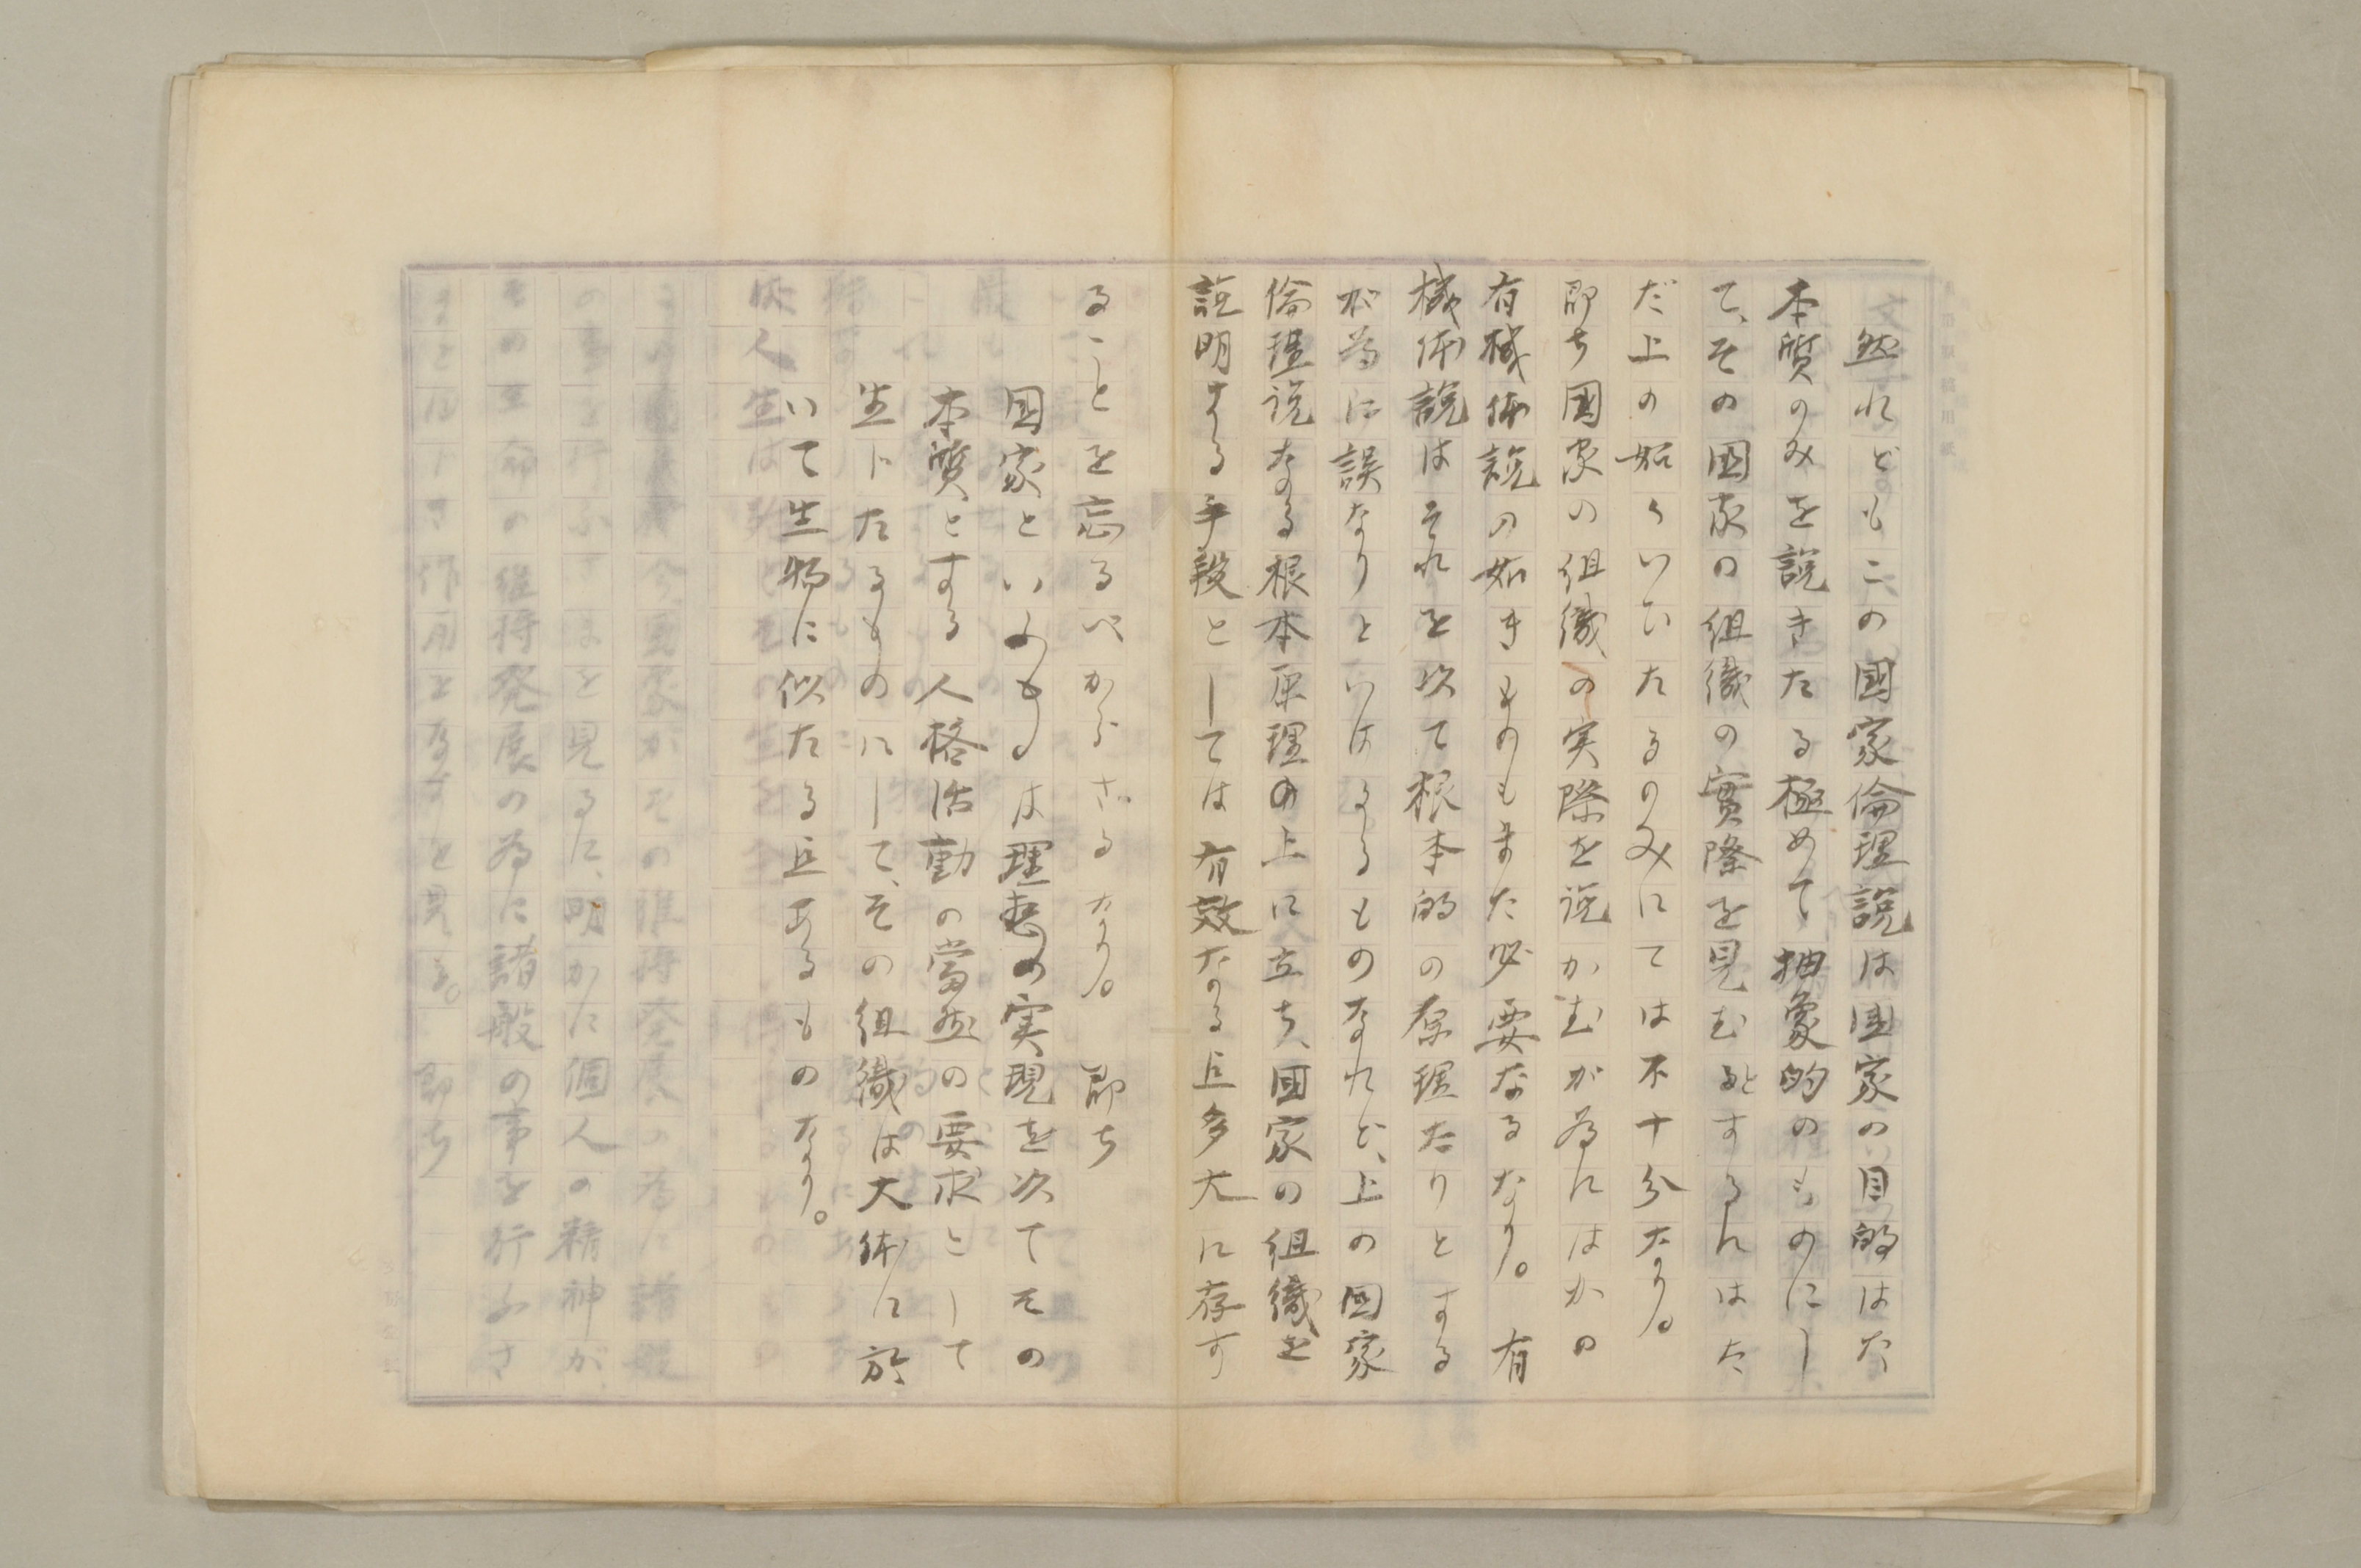 然れどもこの國家倫理説は国家の目的はた
本質のみを説きたる極めて抽象的のものにし
て、その国家の組織の實際を見むとするにはた
だ上の如くいひたるのみにては不十分なり。
即ち國家の組織の実際を説かむが為にはかの
有機体説の如きものもまた必要なるなり。 有
機体説はそれを以て根本的の原理なりとする
が為に誤なりといはるるものなれど、上の国家
倫理説なる根本原理の上に立ち、国家の組織を
説明する手段としては有效なる点多大に存す
ることを忘るべからざるなり。 即ち
国家といふものは理想の実現を以てその
本質とする人格活動の當然の要求として
生じたるものにして、その組織は大体に於
いて生物に似たる点あるものなり。